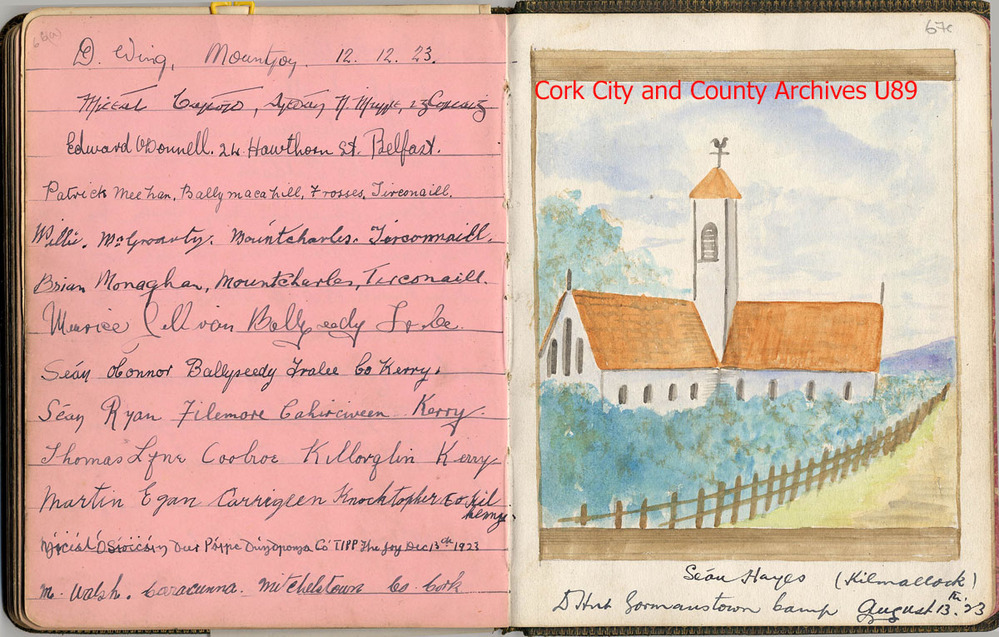 D. Wing, Mountjoy. 12. 12. 23.
Edward O'Donnell. 24 Hawthorn St. Belfast.
Patrick Meehan, Ballymacahill, Frosses, Tirconaill.
Willie. McGroarty. Mountcharles. Tirconnaill.
Brian Monaghan, Mountcharles, Tirconaill.
Seán O'Connor Ballyseedy Tralee Co Kerry.
Seán Ryan Filemore Cahirciveen Kerry.
Thomas Lyne Coolroe Killorglin Kerry
Martin Egan Carrigeen Knocktopher Co Kil
kenny.
Co TIPP The Joy Dec 13th 1923
M. Walsh. Caracunna. Mitchelstown Co. Cork
67c
Cork City and County Archives U89
Seán Hayes (Kilmallock)
D Hut Gormanstown Camp August 13th. 23